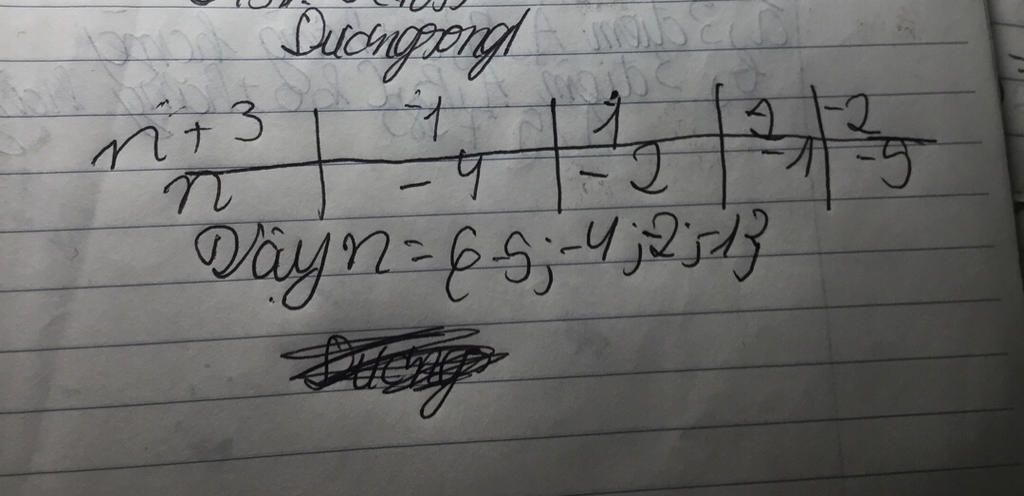 Duongrongl
n+3 | -1 | 1 | 2 | -2
n | -4 | -2 | -1 | -5
Vậy n = {-5; -4; -2; -1}